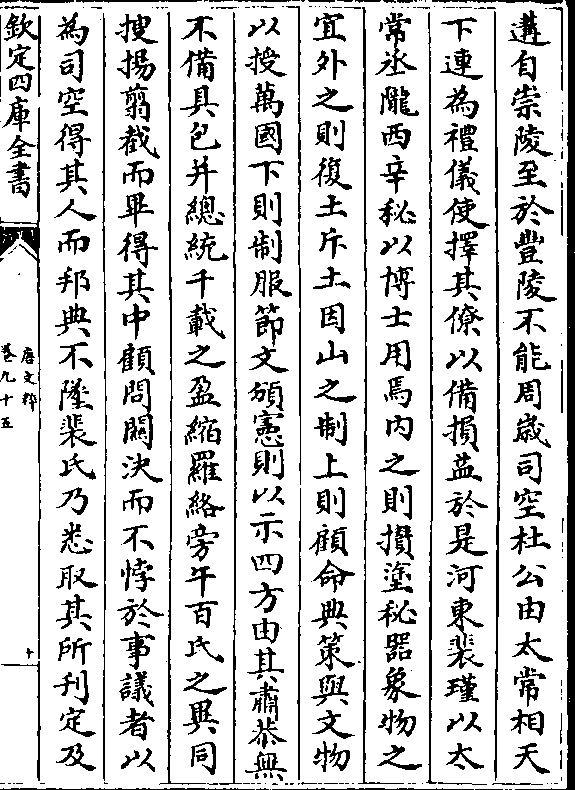 遘自崇陵至於豐陵不能周歲司空杜公由太常相天
下連為禮儀使擇其僚以備損益於是河東裴瑾以太
常丞隴西辛秘以博士用焉内之則攢塗秘器象物之
宜外之則復土斥土因山之制上則顧命典策與文物
以授萬國下則制服節文頒憲則以示四方由其肅恭無
不備具包并總統千載之盈縮羅絡旁午百氏之異同
搜揚翦截而畢得其中顧問關決而不悖於事議者以
為司空得其人而邦典不墜裴氏乃悉取其所刋定及
欽定四庫全書
唐文粹
卷九十五
十